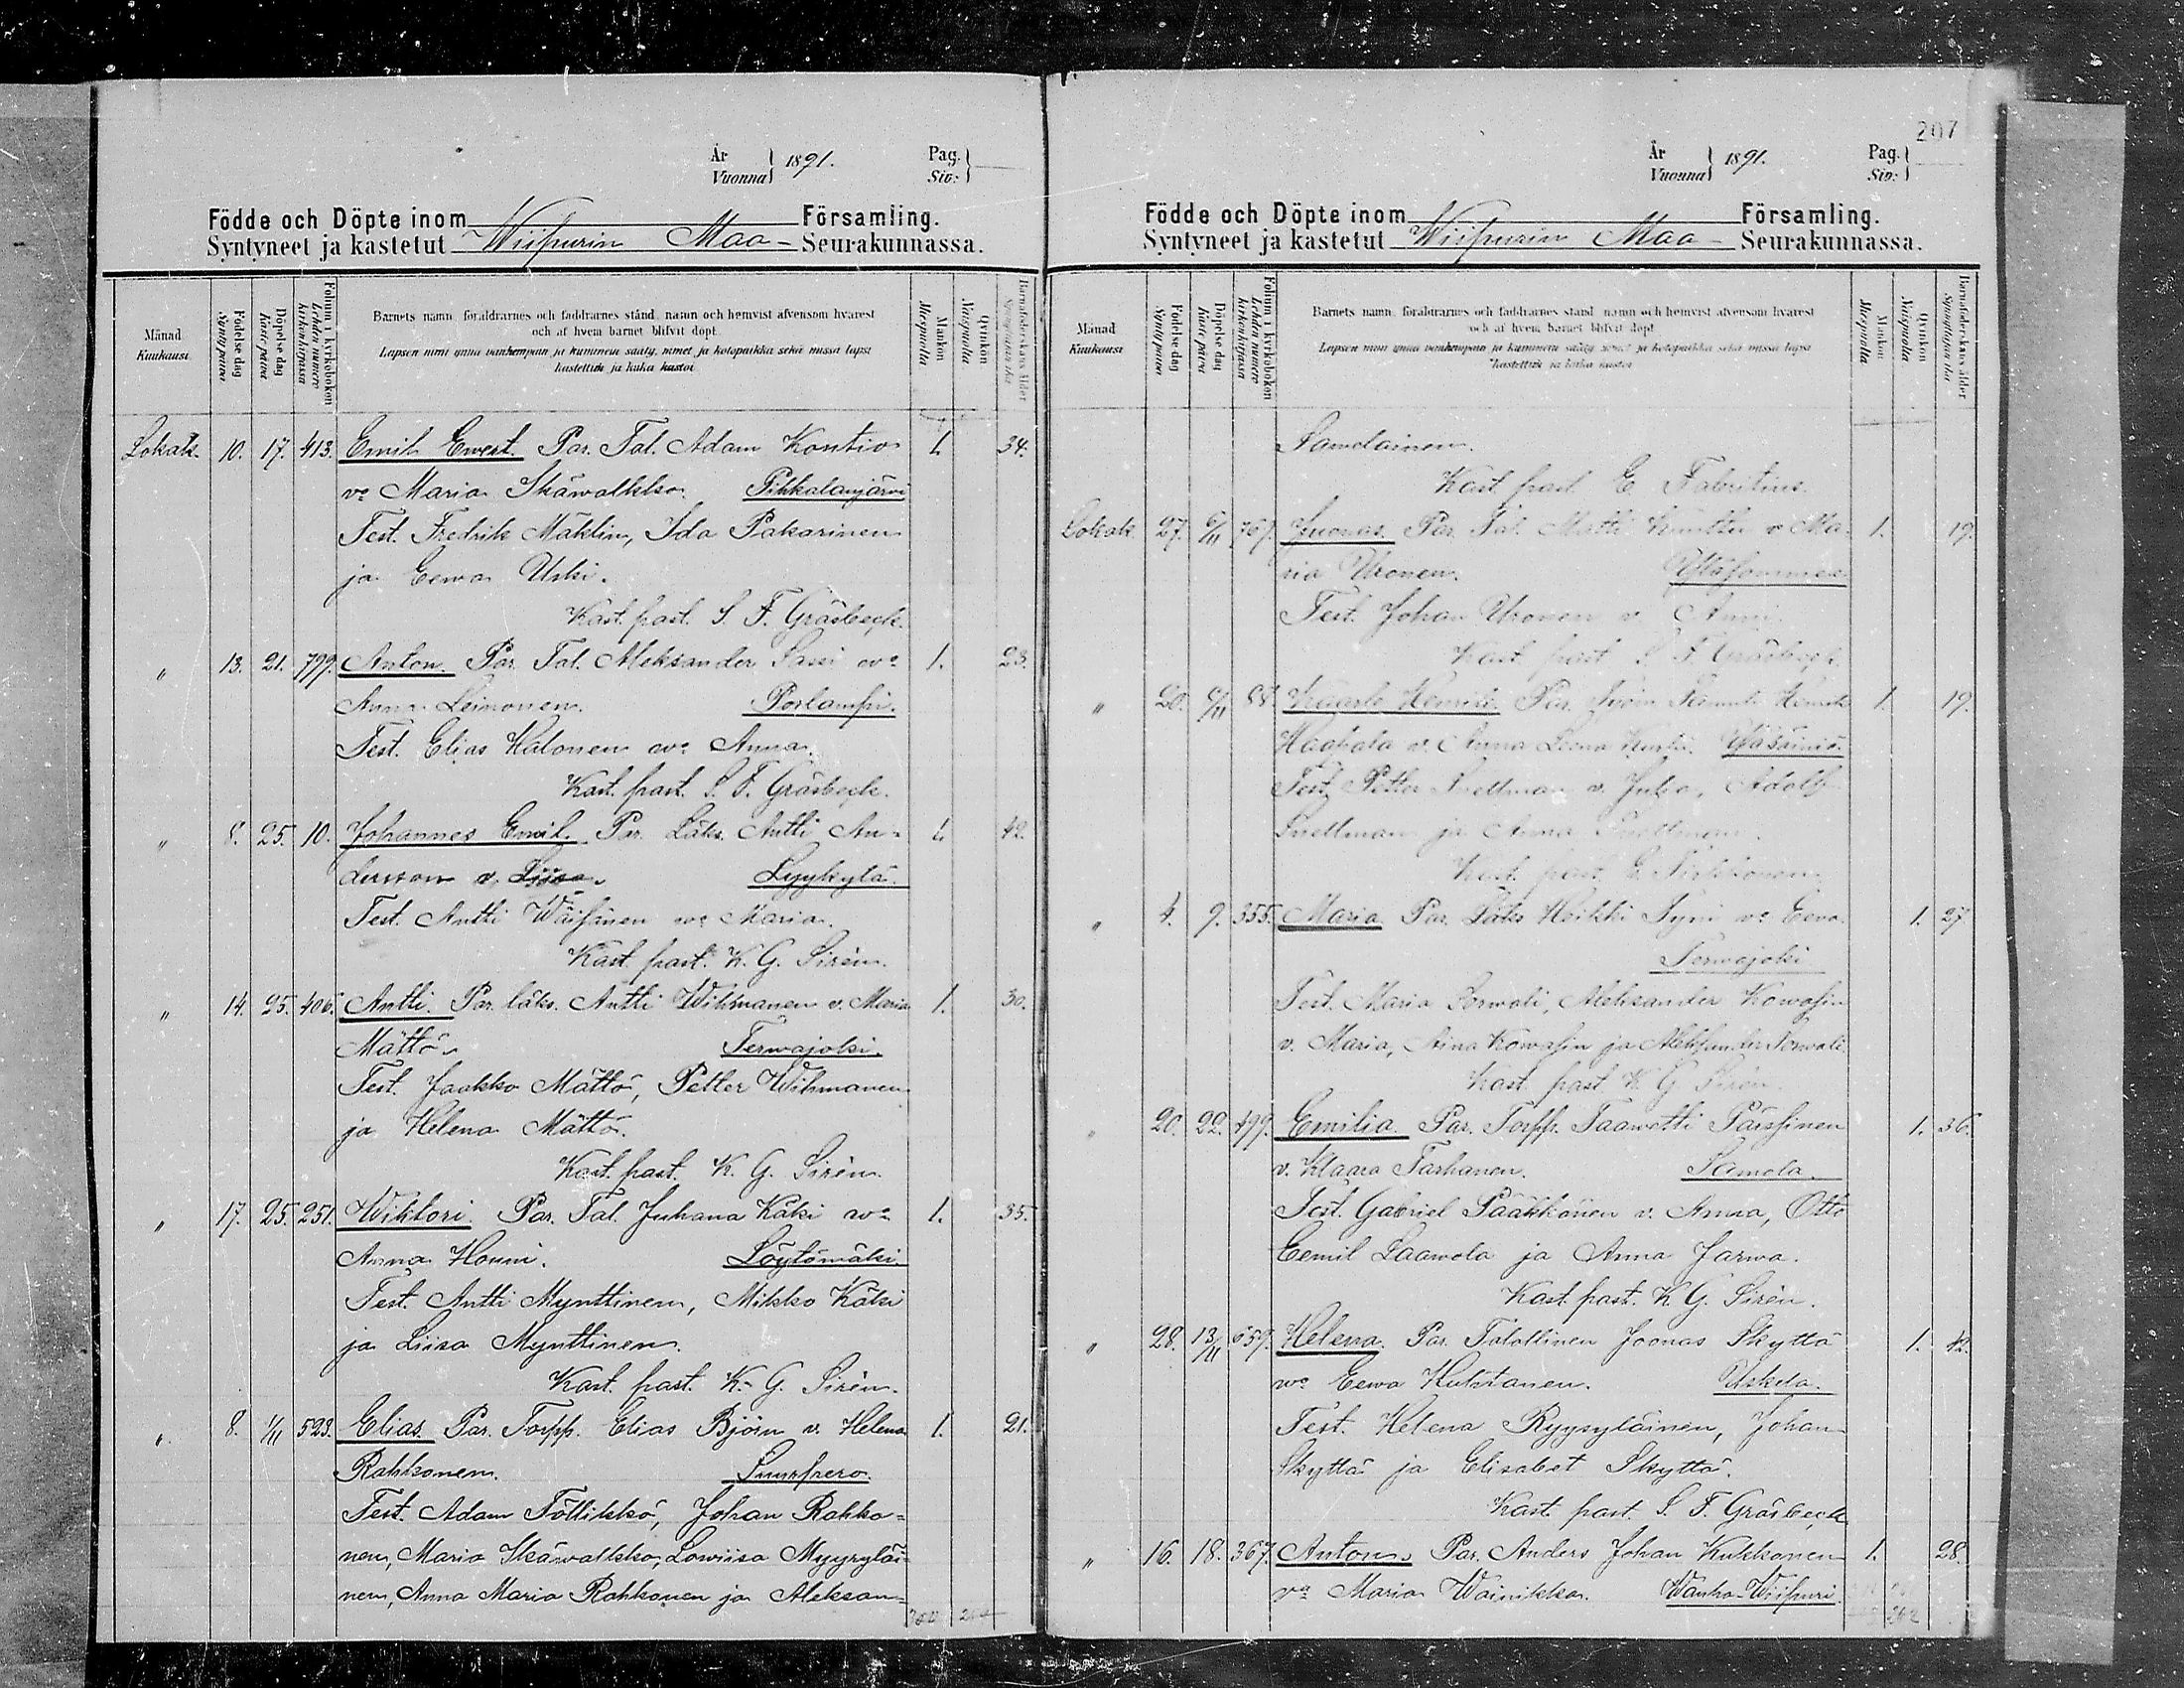 År
Vuonna } 1891.
Pag.
Siv: }
Födde och Döpte inom Församling.
Syntyneet ja kastetut Wiipurin Maa- Seurakunnassa.
Månad
Kuukausi
Födelse dag
Syntypäivä
Döpelse dag
Kastepäivä
Folium i kyrkoboken
Lehden numero kirkonkirjassa
Barnets namn, föräldrarnes och faddrarnes stånd, namn och hemvist äfvensom hvarest
och af hvem barnet blifvit döpt.
Lapsen nimi ynnä vanhempain ja kummein sääty, nimet ja kotopaikka sekä missä lapsi
kastettiin ja kuka kastoi
Mankön
Miespuolta
Qvinkön
Naispuolta
Barnaföderskans ålder
Synnyttäjän ikä
Lokak. 10. 17. 413. Emil Ewert. Par. Tal. Adam Kontio 1. 34.
vo Maria Skäwalkko. Pihkalanjärvi
Test. Fredrik Mäklin, Ida Pakarinen
ja Eewa Uski.
Kast. past. S. F. Gräsbeck.
" 13. 21. 799. Anton. Par. Tal. Aleksander Sassi wo 1. 23.
Anna Leinonen. Porlampi.
Test. Elias Halonen wo Anna.
Kast. past. S. F. Gräsbeck.
" 8. 25. 10. Johannes Emil. Par. Läks. Antti An- 1. 42.
dersson v. Liisa. Lyykylä.
Test. Antti Wäisänen wo Maria.
Kast. past. K. G. Sirén.
" 14. 25. 406. Antti. Par. läks. Antti Wihmanen v. Maria 1. 30.
Mättö. Terwajoki.
Test. Jaakko Mättö, Petter Wihmanen
ja Helena Mättö.
Kast. past. K. G. Sirén.
" 17. 25. 251. Wiktori. Par. Tal. Juhana Käki wo 1. 35.
Anna Houni. Löytömäki.
Test. Antti Mynttinen, Mikko Käki
ja Liisa Mynttinen.
Kast. past. K. G. Sirén.
" 8. 1/11 523. Elias. Par. Torpp. Elias Björn v. Helena 1. 21.
Rahkonen. Suurpero.
Test. Adam Töllikkö, Johan Rahko-
nen, Maria Skäwalkko, Lowiisa Myyryläi-
nen, Anna Maria Rahkonen ja Aleksan-
207
År
Vuonna } 1891.
Pag.
Siv: }
Födde och Döpte inom Församling.
Syntyneet ja kastetut Wiipurin Maa- Seurakunnassa.
Månad
Kuukausi
Födelse dag
Syntypäivä
Döpelse dag
Kastepäivä
Folium i kyrkoboken
Lehden numero kirkonkirjassa
Barnets namn, föräldrarnes och faddrarnes stånd, namn och hemvist äfvensom hvarest
och af hvem barnet blifvit döpt
Lapsen nimi ynnä vanhempain ja kummein sääty, nimet ja kotopaikka sekä missä lapsi
kastettiin ja kuka kastoi
Mankön
Miespuolta
Qvinkön
Naispuolta
Barnaföderskans ålder
Synnyttäjän ikä
Samolainen.
Kast. past. E. Fabritius.
Lokak. 27. 6/11 767. Tuomas. Par. Tal. Matti v. Ma- 1. 19.
ria Uronen. Yläsommee
Test. Johan Uronen v. Anni.
Kast. past. S. F. Gräsbeck.
" 20. 6/11 88. Kaarle Henrik. Par. 1. 19.
v. Anna Leena
Test. Petter Snellman v. Adolf
Snellman ja Anna Snellman.
Kast. past.
" 4. 9. 355. Maria. Par. Läks. Heikki Syni wo Eeva. 1. 27.
Terwajoki
Test. Maria Aleksander
v. Maria, Aina ja
Kast. past. K. G. Sirén.
" 20. 22. 499. Emilia. Par. Torpp. Taawetti Pärssinen 1. 36.
v. Klaara Tarhanen. Samola.
Test. Gabriel Pääkkönen v. Anna, Otto
Eemil Laamola ja Anna Jarwa.
Kast. past. K. G. Sirén.
" 28. 13/11 659. Helena. Par. Talollinen Joonas Skyttä 1. 42.
wo Eewa Huhtanen. Uskela.
Test. Helena Ryysyläinen, Johan
Skyttä ja Elisabet Skyttä.
Kast. past. S. F. Gräsbeck
" 16. 18. 367. Anton. Par. Anders Johan Kukkonen 1. 28.
vo Maria Wainikka. Wanha-Wiipuri.